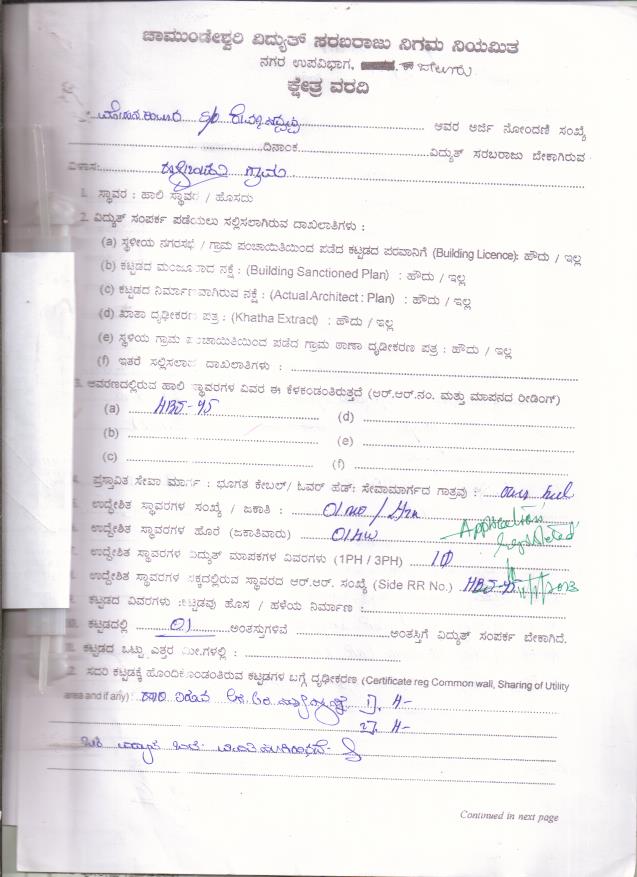 ಚಾಮುಂಡೇಶ್ವರಿ ವಿದ್ಯುತ್ ಸರಬರಾಜು ನಿಗಮ ನಿಯಮಿತ
ನಗರ ಉಪವಿಭಾಗ,
ಕ್ಷೇತ್ರ ವರದಿ
S/o ಅವರ ಅರ್ಜಿ ನೋಂದಣಿ ಸಂಖ್ಯೆ
ದಿನಾಂಕ ವಿದ್ಯುತ್ ಸರಬರಾಜು ಬೇಕಾಗಿರುವ
ವಿಳಾಸ: ಗ್ರಾಮ
1. ಸ್ಥಾವರ : ಹಾಲಿ ಸ್ಥಾವರ / ಹೊಸದು
2. ವಿದ್ಯುತ್ ಸಂಪರ್ಕ ಪಡೆಯಲು ಸಲ್ಲಿಸಲಾಗಿರುವ ದಾಖಲಾತಿಗಳು :
(a) ಸ್ಥಳೀಯ ನಗರಸಭೆ / ಗ್ರಾಮ ಪಂಚಾಯಿತಿಯಿಂದ ಪಡೆದ ಕಟ್ಟಡದ ಪರವಾನಿಗೆ (Building Licence): ಹೌದು / ಇಲ್ಲ
(b) ಕಟ್ಟಡದ ಮಂಜೂರಾದ ನಕ್ಷೆ : (Building Sanctioned Plan) : ಹೌದು / ಇಲ್ಲ
(c) ಕಟ್ಟಡದ ನಿರ್ಮಾಣವಾಗಿರುವ ನಕ್ಷೆ : (Actual Architect : Plan) : ಹೌದು / ಇಲ್ಲ
(d) ಖಾತಾ ದೃಢೀಕರಣ ಪತ್ರ : (Khatha Extract) : ಹೌದು / ಇಲ್ಲ
(e) ಸ್ಥಳಿಯ ಗ್ರಾಮ ಪಂಚಾಯಿತಿಯಿಂದ ಪಡೆದ ಗ್ರಾಮ ಠಾಣಾ ದೃಡೀಕರಣ ಪತ್ರ : ಹೌದು / ಇಲ್ಲ
(f) ಇತರೆ ಸಲ್ಲಿಸಲಾದ ದಾಖಲಾತಿಗಳು :
3. ಆವರಣದಲ್ಲಿರುವ ಹಾಲಿ ಸ್ಥಾವರಗಳ ವಿವರ ಈ ಕೆಳಕಂಡಂತಿರುತ್ತದೆ (ಆರ್.ಆರ್.ನಂ. ಮತ್ತು ಮಾಪನದ ರೀಡಿಂಗ್)
(a) HBJ-45 (d)
(b) (e)
(c) (f)
4. ಪ್ರಸ್ತಾವಿತ ಸೇವಾ ಮಾರ್ಗ : ಭೂಗತ ಕೇಬಲ್/ ಓವರ್ ಹೆಡ್: ಸೇವಾಮಾರ್ಗದ ಗಾತ್ರವು :
5. ಉದ್ದೇಶಿತ ಸ್ಥಾವರಗಳ ಸಂಖ್ಯೆ / ಜಕಾತಿ :
Application
6. ಉದ್ದೇಶಿತ ಸ್ಥಾವರಗಳ ಹೊರೆ (ಜಕಾತಿವಾರು) : 01KW
Registered
7. ಉದ್ದೇಶಿತ ಸ್ಥಾವರಗಳ ವಿದ್ಯುತ್ ಮಾಪಕಗಳ ವಿವರಗಳು (1PH / 3PH)
8. ಉದ್ದೇಶಿತ ಸ್ಥಾವರಗಳ ಪಕ್ಕದಲ್ಲಿರುವ ಸ್ಥಾವರದ ಆರ್.ಆರ್. ಸಂಖ್ಯೆ (Side RR No.) HBJ-45
9. ಕಟ್ಟಡದ ವಿವರಗಳು :ಕಟ್ಟಡವು ಹೊಸ / ಹಳೆಯ ನಿರ್ಮಾಣ :
10. ಕಟ್ಟಡದಲ್ಲಿ 01 ಅಂತಸ್ತುಗಳಿವೆ ಅಂತಸ್ತಿಗೆ ವಿದ್ಯುತ್ ಸಂಪರ್ಕ ಬೇಕಾಗಿದೆ.
11. ಕಟ್ಟಡದ ಒಟ್ಟು ಎತ್ತರ ಮೀ.ಗಳಲ್ಲಿ :
12. ಸದರಿ ಕಟ್ಟಡಕ್ಕೆ ಹೊಂದಿಕೊಂಡಂತಿರುವ ಕಟ್ಟಡಗಳ ಬಗ್ಗೆ ದೃಢೀಕರಣ (Certificate reg Common wall, Sharing of Utility
area and if any) :
Continued in next page